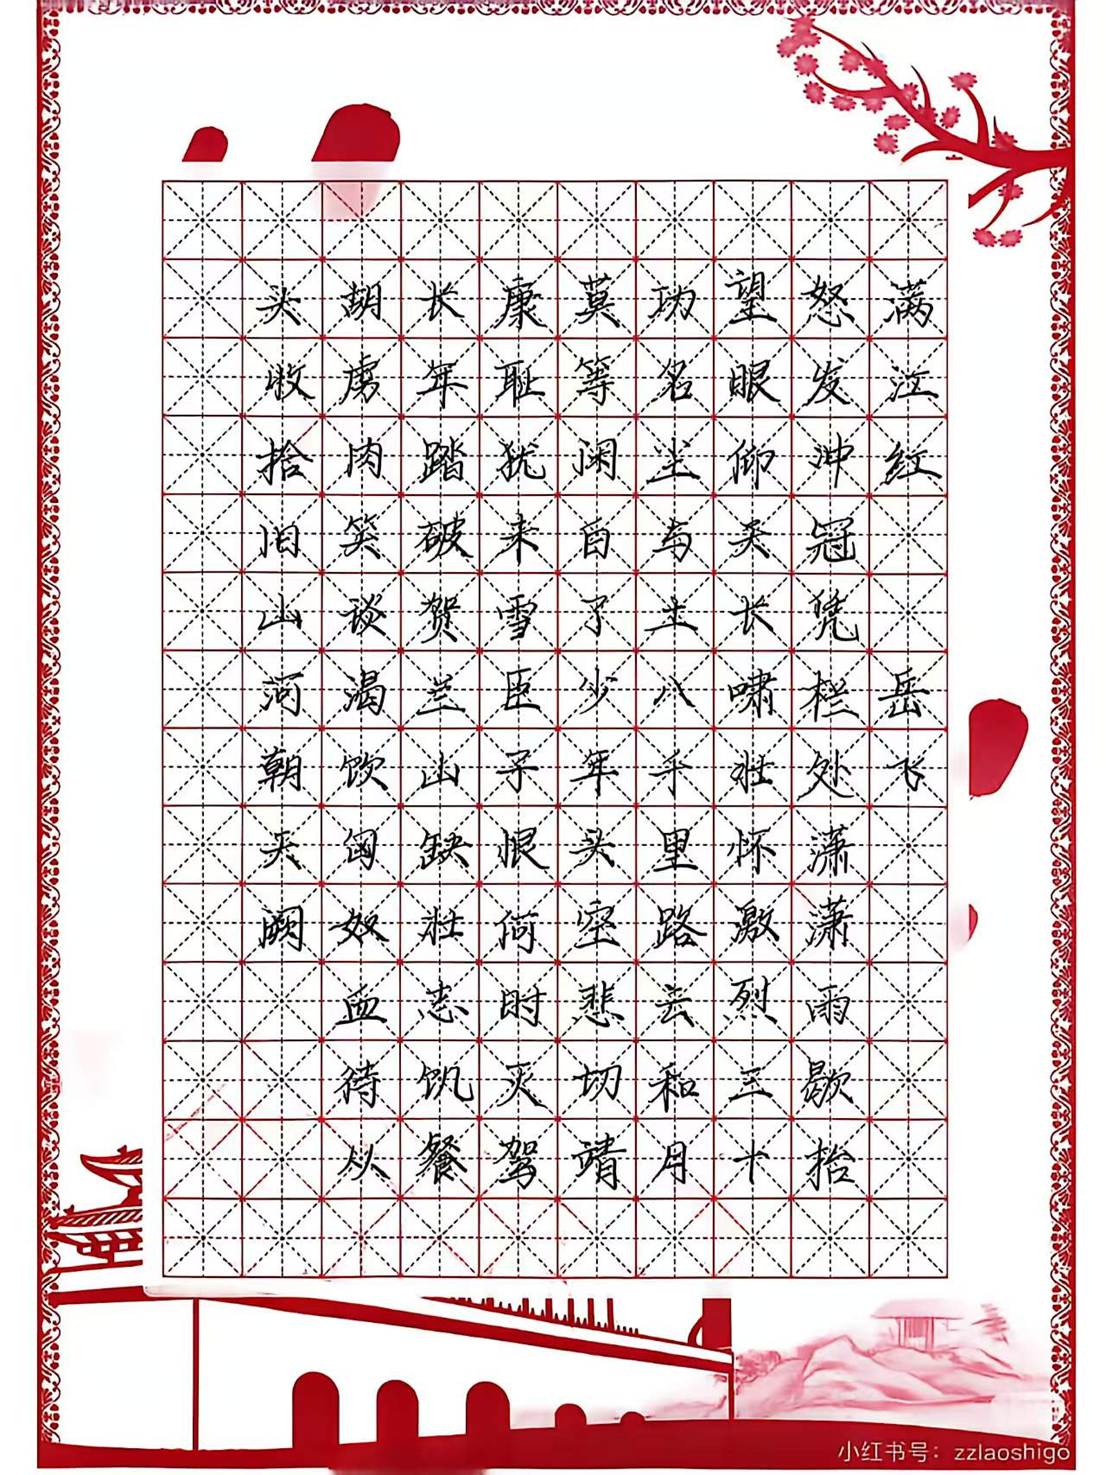 满江红 岳飞
怒发冲冠凭栏处潇潇雨歇抬
望眼仰天长啸壮怀激烈三十
功名尘与土八千里路云和月
莫等闲白了少年头空悲切靖
康耻犹来雪臣子恨何时灭驾
长年踏破贺兰山缺壮志饥餐
胡虏肉笑谈渴饮匈奴血待从
头收拾旧山河朝天阙
小红书号：zzlaoshigo